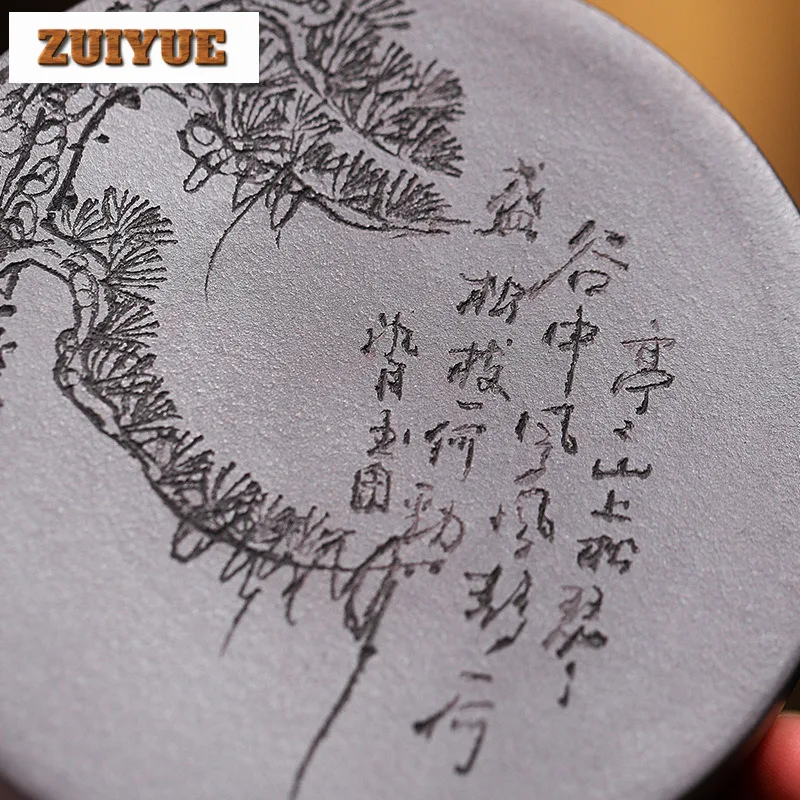 ZUIYUE
亭〻山上松瑟〻
谷中风风声一何
盛松枝一何劲